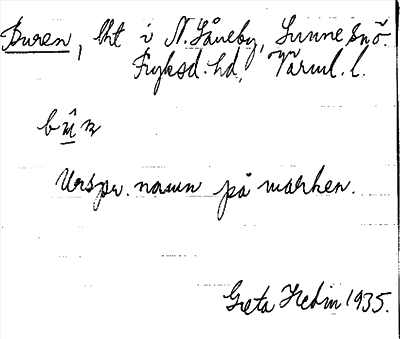 Buren, lht i N. Låneby, Sunne snö.
Fryksd. hd, Värml. l.
bû̱n
Urspr. namn på marken.
Greta Hedin 1935.